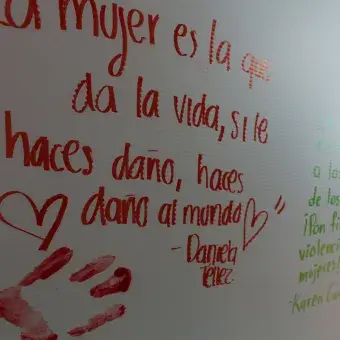 La mujer es la que
da la vida, si le
haces daño, haces
daño al mundo"
- Daniela
Tellez.
a los
de los
¡Pon fi
violenci
mujeres!
-Karen